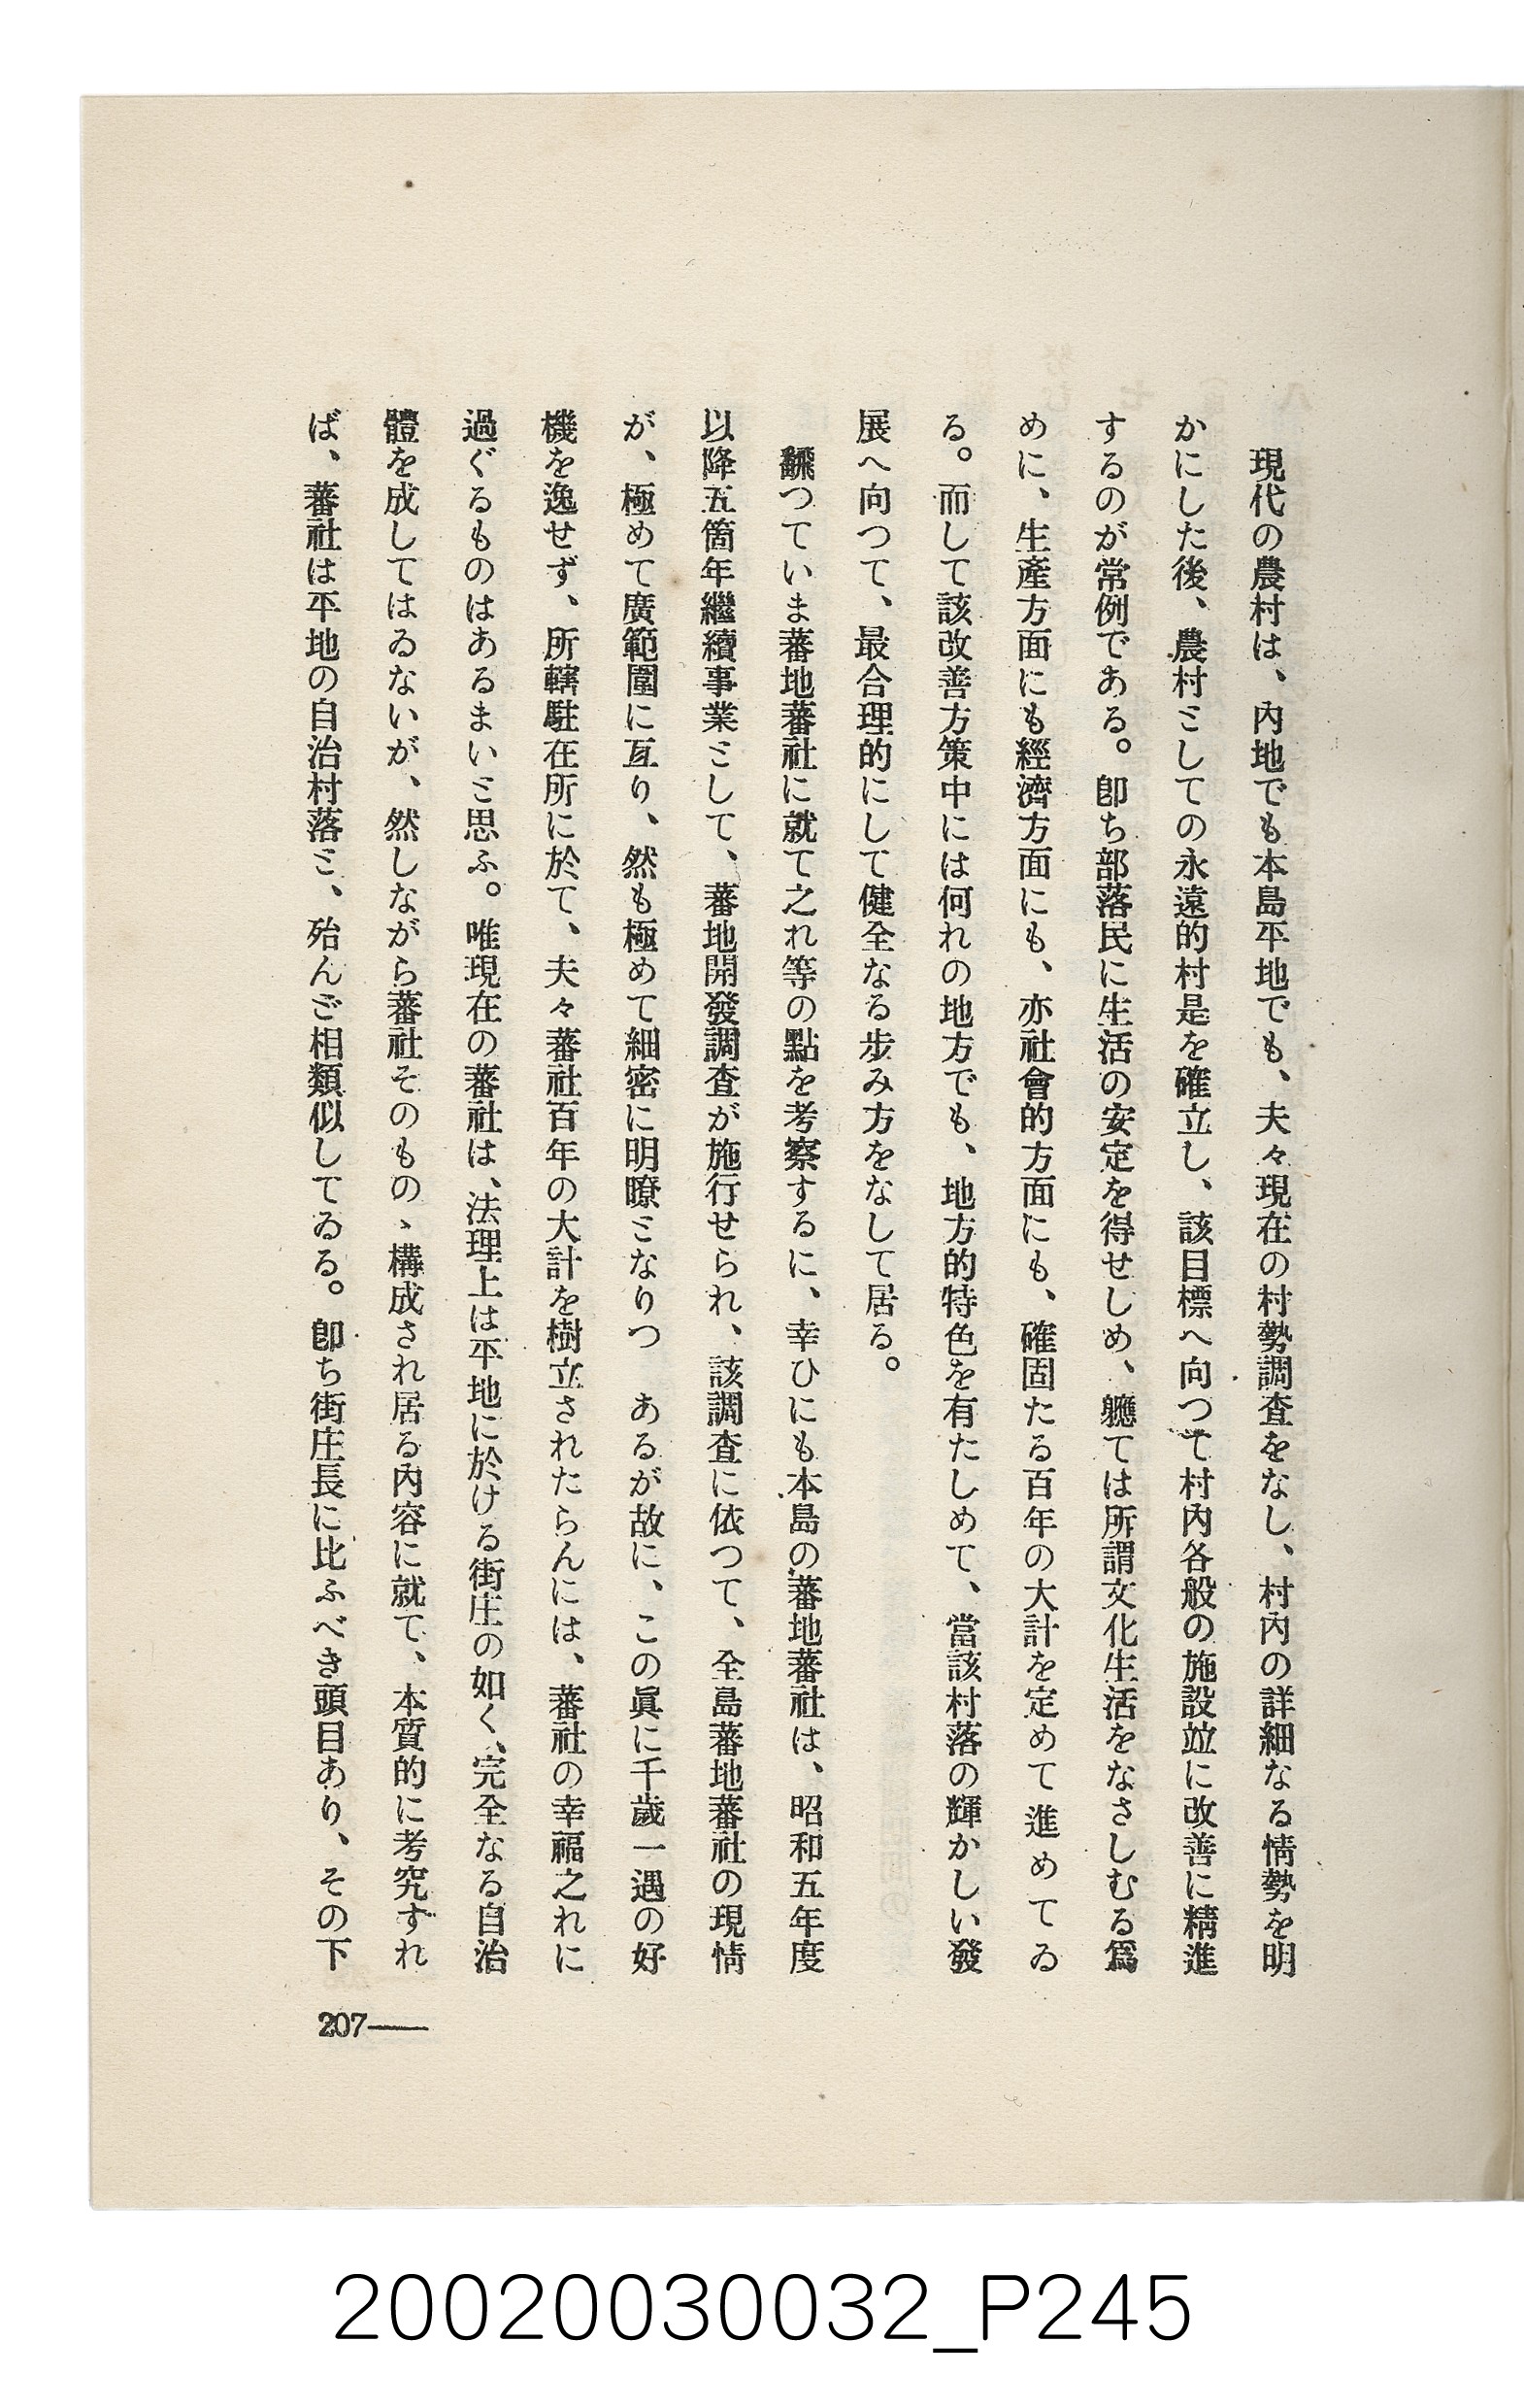 現代の農村は、內地でも本島平地でも、夫々現在の村勢調査をなし、村內の詳細なる情勢を明
かにした後、農村ミしての永遠的村是を確立し、該目標へ向つて村內各般の施設竝に改善に精進
するのが常例である。卽ち部落民に生活の安定を得せしめ、軈ては所謂文化生活をなさしむる爲
めに、生產方面にも經濟方面にも、亦社會的方面にも、確固たる百年の大計を定めて進めてゐ
る。而して該改善方策中には何れの地方でも、地方的特色を有たしめて、當該村落の輝かしい發
展へ向つて、最合理的にして健全なる步み方をなして居る。
飜つていま蕃地蕃社に就て之れ等の點を考察するに、幸ひにも本島の蕃地蕃社は、昭和五年度
以降五箇年繼續事業ミして、蕃地開發調査が施行せられ、該調査に依つて、全島蕃地蕃社の現情
が、極めて廣範圍に亙り、然も極めて細密に明瞭ミなりつ　あるが故に、この眞に千歲一遇の好
機を逸せず、所轄駐在所に於て、夫々蕃社百年の大計を樹立されたらんには、蕃社の幸福之れに
過ぐるものはあるまいミ思ふ。唯現在の蕃社は、法理上は平地に於ける街庄の如く、完全なる自治
體を成してはゐないが、然しながら蕃社そのものゝ構成され居る內容に就て、本質的に考究すれ
ば、蕃社は平地の自治村落ミ、殆んご相類似してゐる。卽ち街庄長に比ふべき頭目あり、その下
207——
20020030032_P245